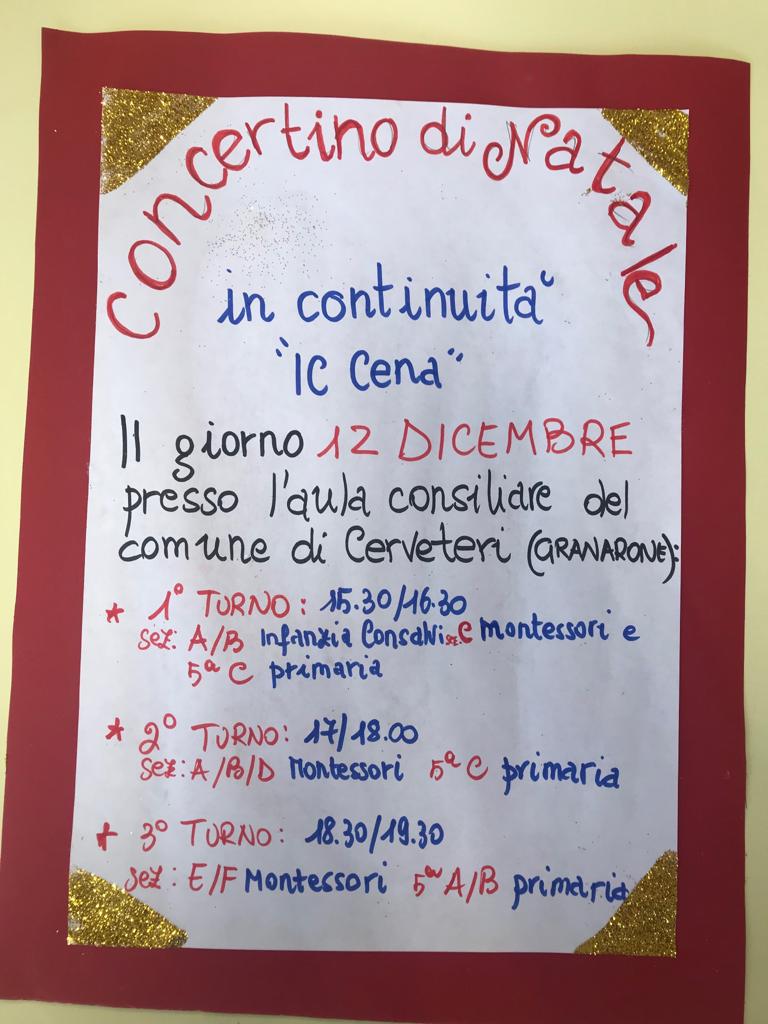 Concertino di Natale
in continuità
"IC Cena"
Il giorno 12 DICEMBRE
presso l'aula consiliare del
comune di Cerveteri (GRANARONE):
* 1° TURNO: 15.30/16.30
sez: A/B Infanzia Consalvi sez. C Montessori e
5ª C primaria
* 2° TURNO: 17/18.00
sez: A/B/D Montessori 5ª C primaria
* 3° TURNO: 18.30/19.30
sez: E/F Montessori 5ª A/B primaria